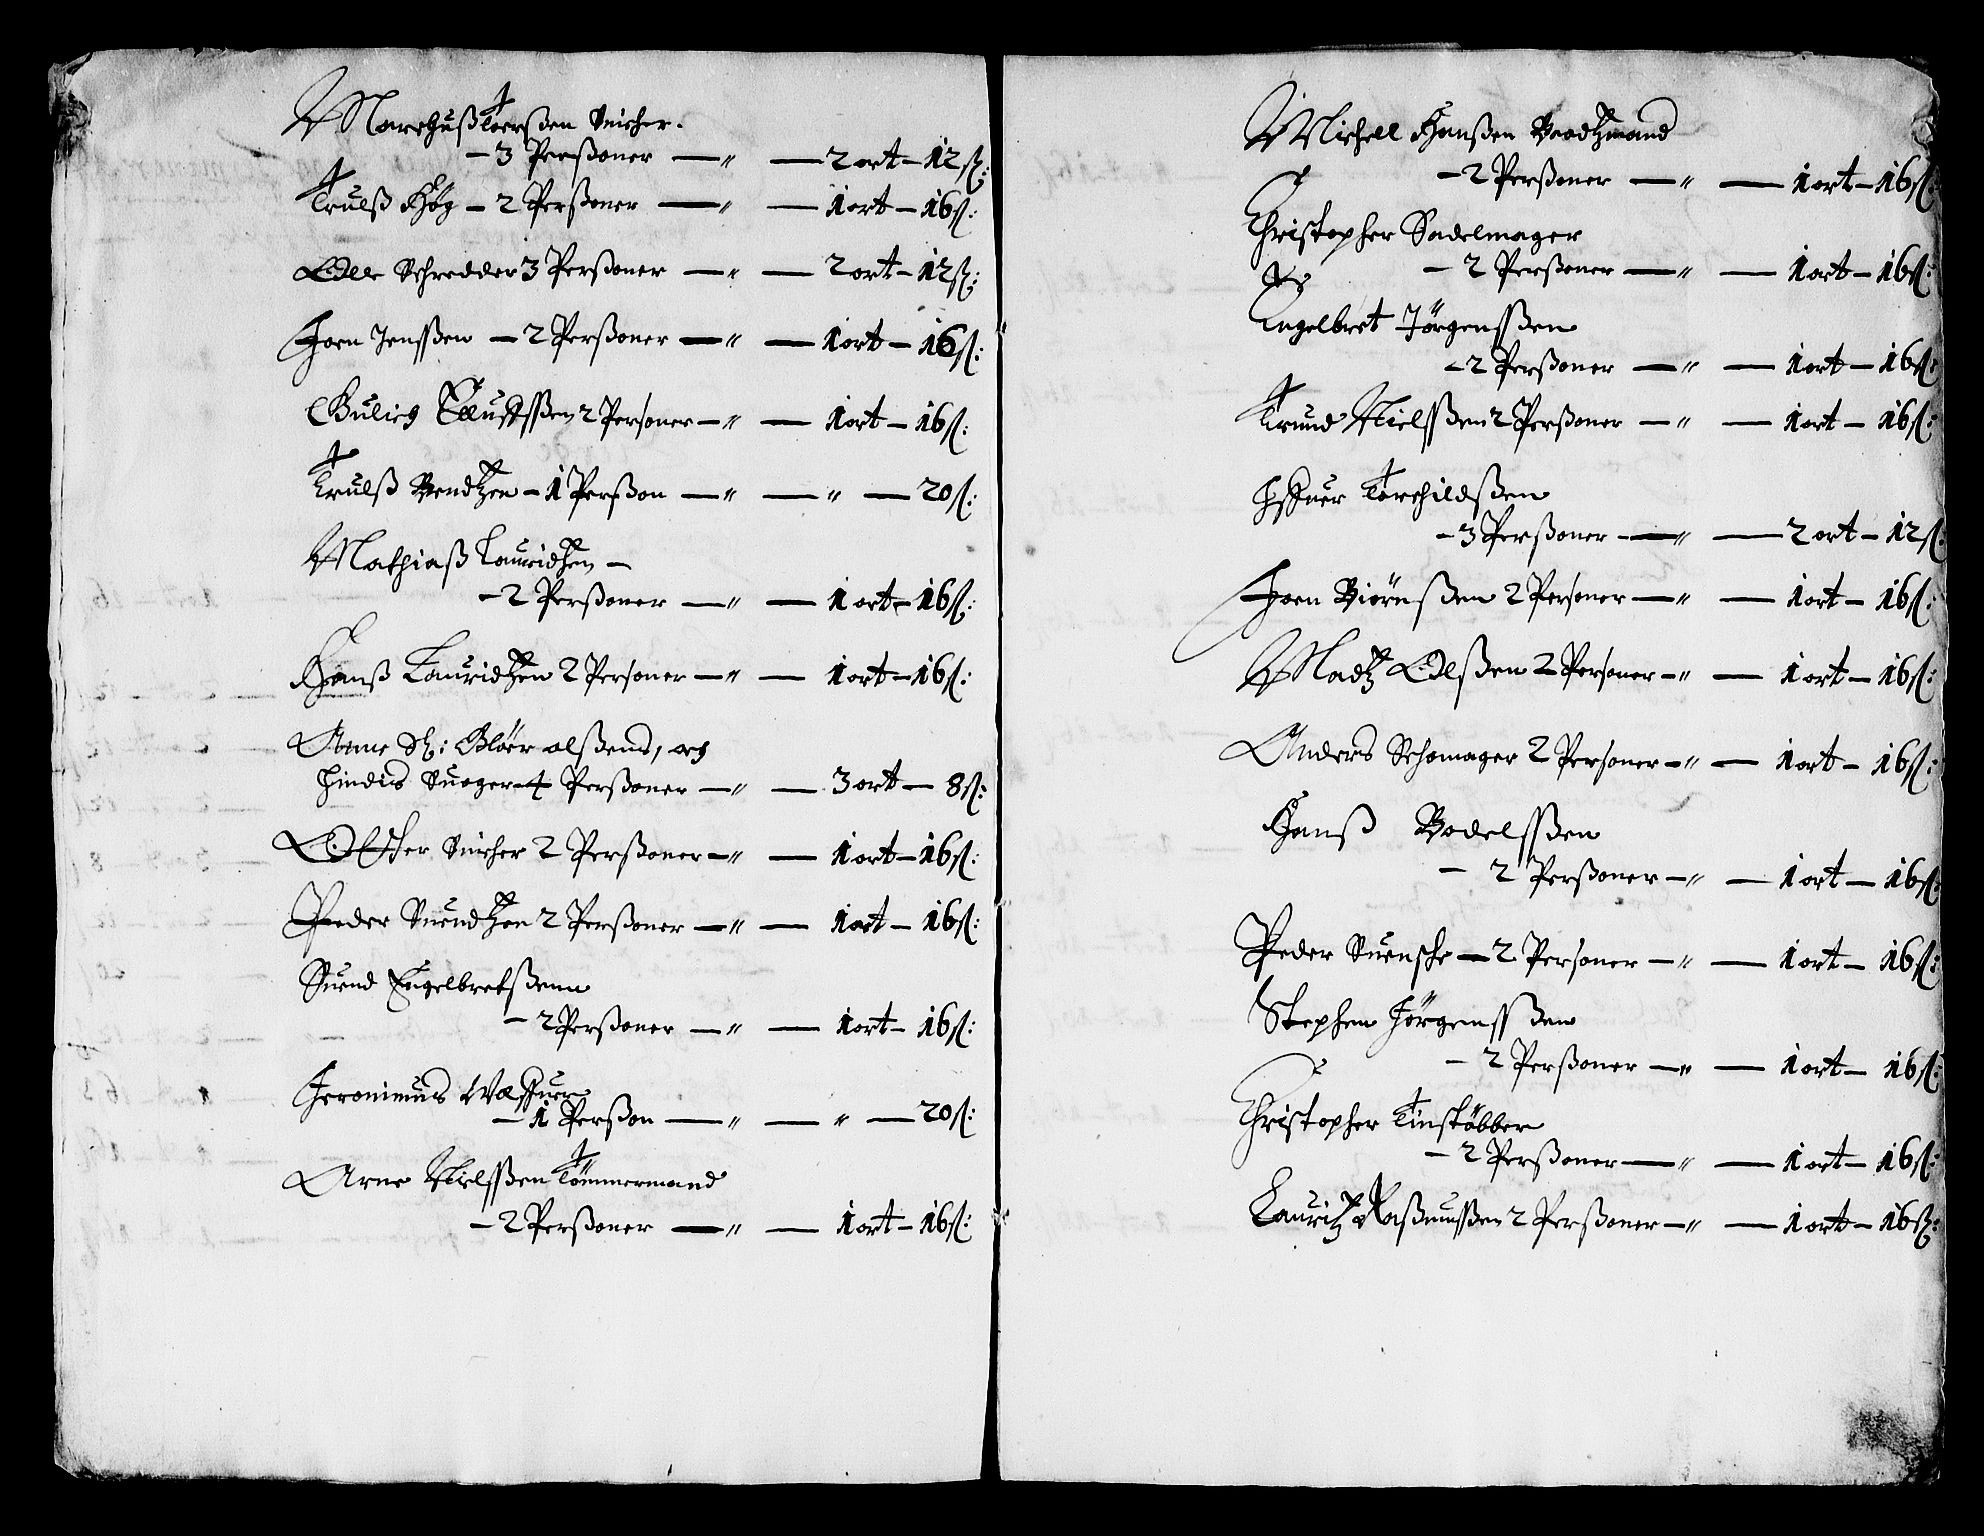 Marchuß Toerßen Snicher.
— 3 Perßoner — " — 2 ort — 12 ß:
Trulß Høg — 2 Perßoner — " — 1 ort — 16 ß:
Olle Schredder 3 Perßoner — " — 2 ort — 12 ß:
Joen Jenssßen — 2 Perßoner — " — 1 ort — 16 ß:
Gulich 2 Personer — " — 1 ort — 16 ß:
Trulß Bendtzen — 1 Perßon — " — " — 20 ß:
Mathiaß Lauridtzen —
— 2 Perßoner — " — 1 ort — 16 ß:
Hanß Lauridtzen 2 Personer — " — 1 ort — 16 ß:
Anne Sl: Gløer olßens, och
hindis Suoger 4 Perßoner — " — 3 ort — 8 ß:
Snicher 2 Perßoner — " — 1 ort — 16 ß:
Peder Suendtzen 2 Perßoner — " — 1 ort — 16 ß:
Suend Engelbretßenn
— 2 Perßoner — " — 1 ort — 16 ß:
Jeronimus
— 1 Perßon — " — " — 20 ß:
Arne Nielssßen Tömmermand
— 2 Perßoner — " — 1 ort — 16 ß:
Michell Hanßen Baadtzmand
— 2 Perßoner — " — 1 ort — 16 ß:
Christopher Sadelmager
— 2 Perßoner — " — 1 ort — 16 ß:
Engelbret Jörgenssßen
— 2 Perßoner — " — 1 ort — 16 ß:
Trund Nielssßen 2 Perßoner — " — 1 ort — 16 ß:
Torchildßen
— 3 Perßoner — " — 2 ort — 12 ß:
Joen Biörnßen 2 Personer — " — 1 ort — 16 ß:
Madtz Olßen 2 Personer — " — 1 ort — 16 ß:
Anders Schomager 2 Personer — " — 1 ort — 16 ß:
Hanß Bodelssßen
— 2 Perßoner — " — 1 ort — 16 ß:
Peder Suensche — 2 Personer — " — 1 ort — 16 ß:
Stephen Jörgenssßen
— 2 Perßoner — " — 1 ort — 16 ß:
Christopher Tinstöbber
— 2 Perßoner — " — 1 ort — 16 ß:
Lauritz Raßmussßen 2 Perßoner — " — 1 ort — 16 ß: